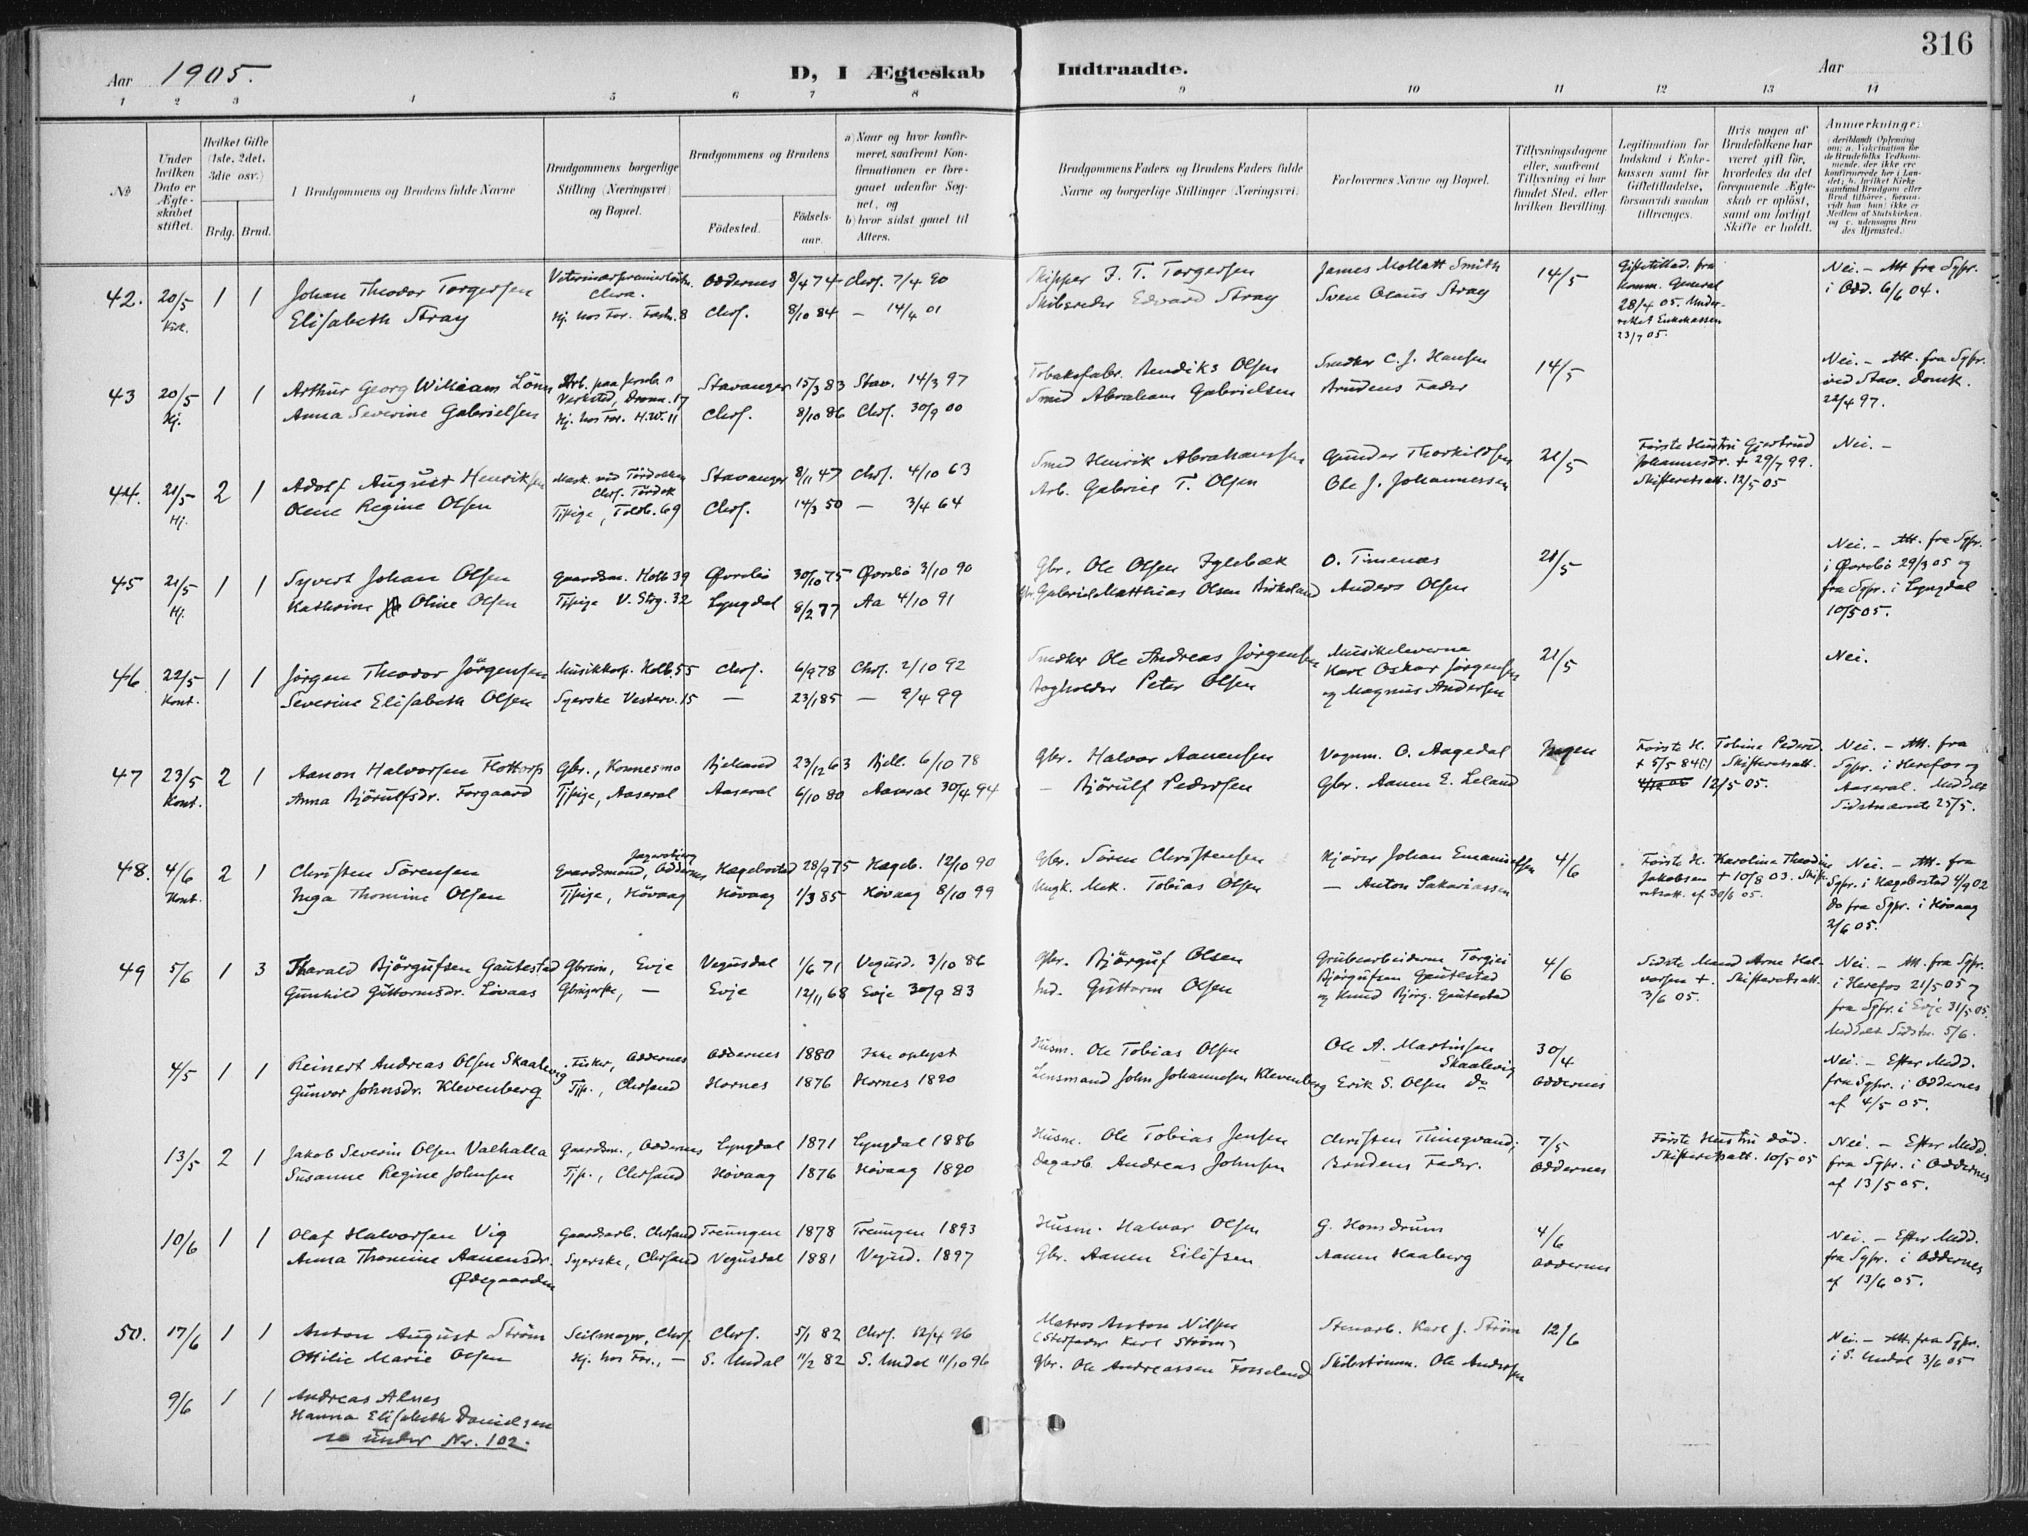 316
Aar 1905.
D, I Ægteskab Indtraadte.
Aar
1 2 3 4 5 6 7 8 9 10 11 12 13 14
No
Under hvilken Dato er Ægteskabet stiftet.
Hvilket Gifte (1ste, 2det, 3die osv.)
Brdg. Brud.
Brudgommens og Brudens fulde Navne
Brudgommens borgerlige Stilling (Næringsvei) og Bopæl.
Brudgommens og Brudens
Fødested. Fødselsaar.
a) Naar og hvor konfirmeret, saafremt Konfirmationen er foregaaet udenfor Sognet, og
b) hvor sidst gaaet til Alters.
Brudgommens Faders og Brudens Faders fulde Navne og borgerlige Stillinger (Næringsvei)
Forlovernes Navne og Bopæl.
Tillysningsdagene eller, saafremt Tillysning ei har fundet Sted, efter hvilken Bevilling.
Legitimation for Indskud i Enkekassen samt for Giftetilladelse, forsaavidt saadan tiltrænges.
Hvis nogen af Brudefolkene har været gift før, hvorledes da det foregaaende Ægteskab er opløst, samt om lovligt Skifte er holdt.
Anmerkninger
42. 20/5 1 1 Johan Theodor Torgersen Oddernes 8/4 74 Chrs. 7/4 90 Skipper J. T. Torgersen James Mollatt Smith 14/5 Nei. – Att fra Spr. i Odd. 6/6 04.
Elisabeth Stray Hj. hos For. 8 Chrs. 8/10 84 – 14/4 01 Skibsreder Edward Stray Sven Olaus Stray
Giftetillad. fra Komm. General 28/4 05. 23/7 05.
43 20/5 Hj. 1 1 Arthur Georg William Lönn Stavanger 15/3 83 Stav. 14/3 97 Tobaksfabr. Olsen Snedker C. J. Hansen 14/5 Nei. – Att. fra Spr. ved Stav. Domk. 22/4 97.
Anna Severine Gabrielsen Hj. hos For. H.W. 11 Chrs. 8/10 86 Chrs. 30/9 00 Smed Abraham Gabrielsen Brudens Fader
44. 21/5 Hj. 2 1 Adolf August Henriksen Stavanger 8/11 47 Chrs. 4/10 63 Smed Henrik Abrahamsen Gunder Thorkildsen 21/5 Første Hustru Gjertrud Johannesdr. + 29/7 99. Skifteretsatt. 12/5 05 Nei. –
Oline Regine Olsen Tjpige, Toldb. 69 Chrs. 14/3 50 – 3/4 64 Arb. Gabriel T. Olsen Ole J. Johannessen
45 21/5 Hj. 1 1 Syvert Johan Olsen Gaardsm. Holb 39 Øvrebø 30/10 75 Øvrebø 3/10 90 Gbr. Ole Olsen Iglebæk O. Timenæs 21/5 Nei. – Att. fra Spr. i Øvrebø 29/3 05 og fra Spr. i Lyngdal 10/5 05.
Kathrine Oline Olsen Tjpige V. Strg. 32 Lyngdal 8/2 77 Aa 4/10 91 Gbr. Gabriel Matthias Olsen Birkeland Anders Olsen
46. 22/5 Kont. 1 1 Jørgen Theodor Jörgensen Musikkorp. Holb. 55 Chrs. 6/9 78 Chrs. 2/10 92 Snedker Ole Andreas Jörgensen Musikeleverne Karl Oskar Jørgensen og Magnus Andersen 21/5 Nei.
Severine Elisabeth Olsen Syerske Vesterv. 15 – 23/1 85 – 9/4 99 Peter Olsen
47 23/5 Kont. 2 1 Aanon Halvorsen Gbr., Konnesmo Bjelland 23/12 63 Bjell. 6/10 78 Gbr. Halvor Aanensen Vognm. O. Aagedal Ingen Første H. Tobine Pedersd. + 5/5 84(?) Skifteretsatt. 12/5 05. Nei. – Att. fra Spr. i Herefos og Aaseral. Meddelt Sidstnævnte 25/5.
Anna Björulfsdr. Forgaard Tjpige, Aaseral Aaseral 6/10 80 Aaseral 30/4 94 – Björulf Pedersen Gbr. Aanen E. Leland
48. 4/6 Kont. 2 1 Christen Sörensen Gaardsmand, Oddernes Hægebostad 28/9 75 Hægeb. 12/10 90 Gbr. Sören Christensen Kjører Johan Emanuelsen 4/6 Første H. Karoline Theodine Jakobsen + 10/8 03. Skifteretsatt. af 30/6 05. Nei. – Att. fra Spr. i Hægebostad 4/9 02 Do fra Spr. i Høvaag 2/6 05.
Inga Thomine Olsen Tjpige, Høvaag Høvaag 1/3 85 Høvaag 8/10 99 Ungk. Mek. Tobias Olsen – Anton Sakariassen
49 5/6 1 3 Tharald Björgufsen Gautestad Gbrsøn, Evje Vegusdal 1/6 71 Vegusd. 3/10 86 Gbr. Björguf Olsen Grubearbeiderne Torgius Björgufsen Gautestad og Knud Bjørg. Gautestad 4/6 Sidste Mand Arne Halvorsen +. Skifteretsatt. 3/6 05. Nei. – Att. fra Spr. i Herefos 21/5 05 og fra Spr. i Evje 31/5 05. Meddelt Sidstn. 5/6.
Gunhild Guttormsdr. Lövaas – Evje 12/11 68 Evje 30/9 83 Ind. Guttorm Olsen
4/5 1 1 Reinert Andreas Olsen Skaalevig Fisker, Oddernes Oddernes 1880 Ikke oplyst Husm. Ole Tobias Olsen Ole A. Martinsen Skaalevig 30/4 Oddernes Nei. – Efter Medd. fra Spr. i Oddernes af 4/5 05.
Gunvor Johnsdr. Klevenberg Tjp., Chrsand Hornes 1876 Hornes 1890 Lensmand John Johannesen Klevenberg Erik S. Olsen Do
13/5 2 1 Jakob Severin Olsen Valhalla Gaardsm., Oddernes Lyngdal 1871 Lyngdal 1886 Husm. Ole Tobias Jensen Christen Tingvand, 7/5 Oddernes Første Hustru död. Skifteretsatt. 10/5 05 Nei. – Efter Medd. fra Spr. i Oddernes af 13/5 05.
Susanne Regine Johnsen Tjp., Chrsand Høvaag 1876 Høvaag 1890 Dagarb. Andreas Johnsen Brudens Fader.
10/6 1 1 Olaf Halvorsen Vig Gaardsarb. Chrsand Treungen 1878 Treungen 1893 Husm. Halvor Olsen G. Homsdrum 4/6 Oddernes Nei. – Efter Medd. fra Spr. i Oddernes af 13/6 05.
Anna Thomine Aanensdr. Ødegaarden Syerske, Chrsand Vegusdal 1881 Vegusd. 1897 Gbr. Aanen Eilifsen Aanen Haaberg
50. 17/6 1 1 Anton August Ström Seilmager, Chrs. Chrs. 5/1 82 Chrs. 12/4 96 Matros Anton Nilsen (Stedfader Karl Ström) Stenarb. Karl J. Ström 12/6 Nei. – Att. fra Spr. i S. Undal 3/6 05
Ottilie Marie Olsen Hj. hos For., – S. Undal 11/2 82 S. Undal 11/10 96 Gbr. Ole Andreassen Fosseland Skibstömm. Ole Andersen
9/6 1 1 Andreas Alnes
Hanna Elisabeth Danielsen
se under Nr. 102.